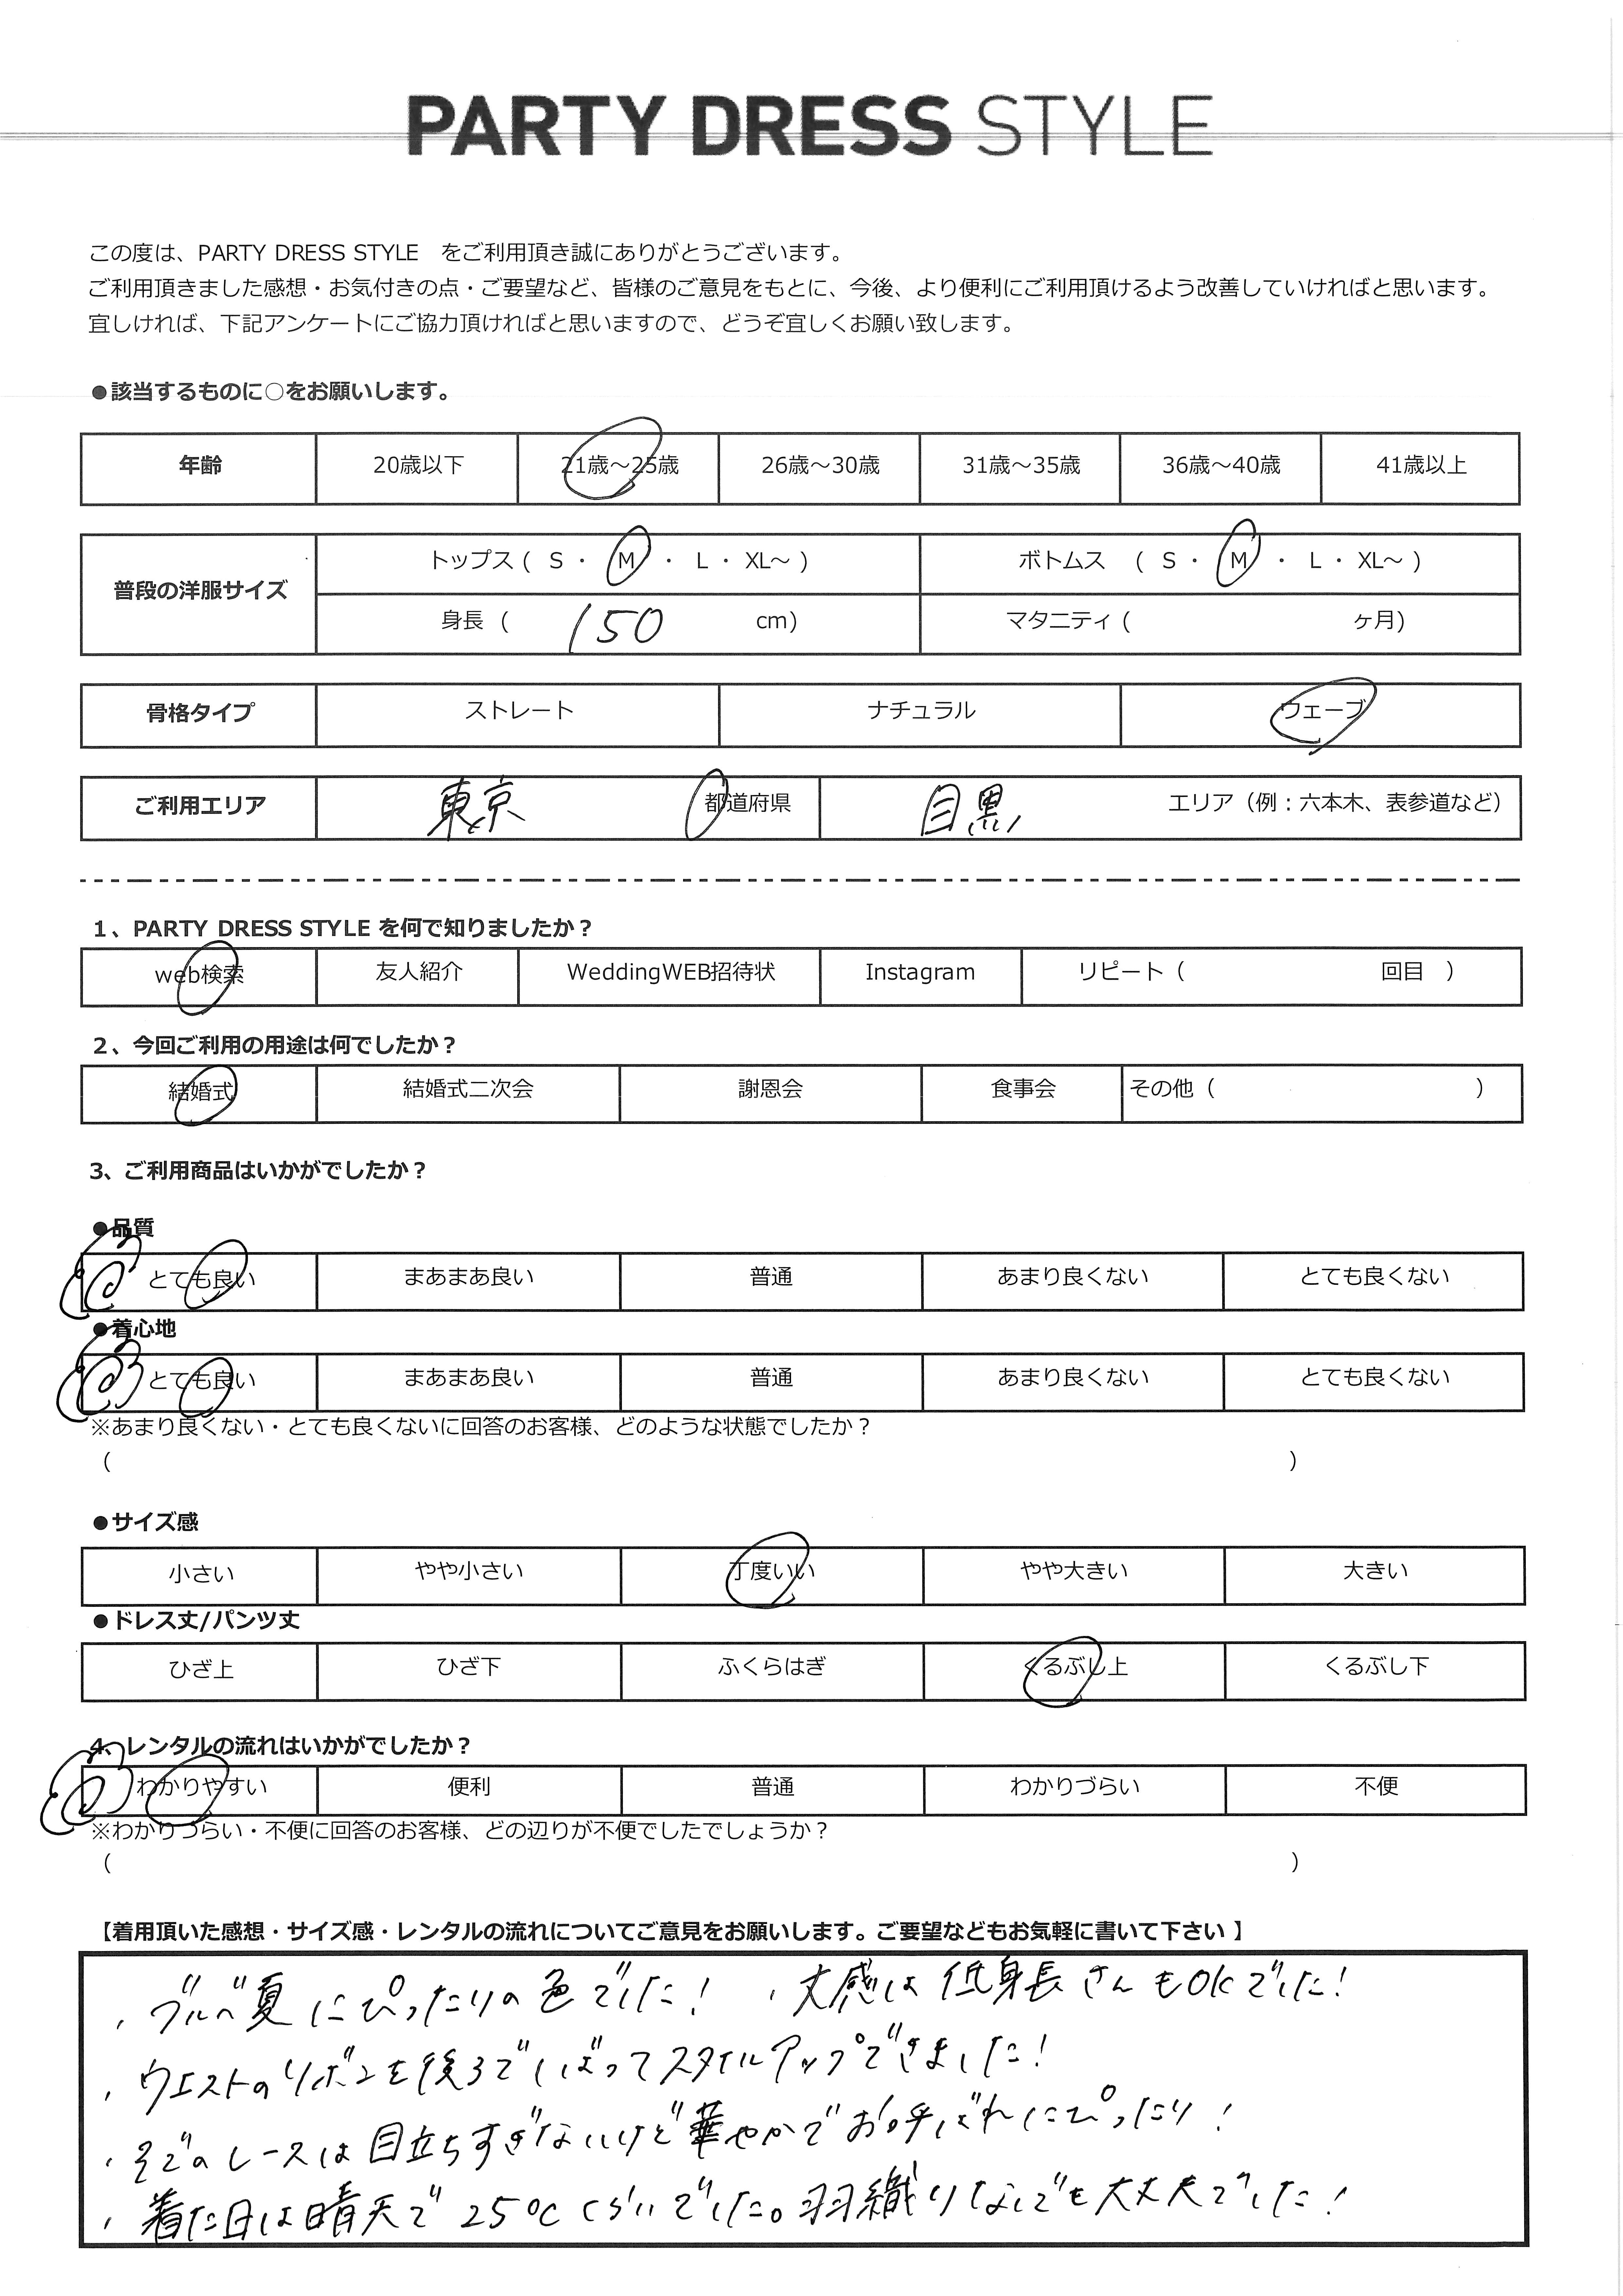 PARTY DRESS STYLE
この度は、PARTY DRESS STYLE　をご利用頂き誠にありがとうございます。
ご利用頂きました感想・お気付きの点・ご要望など、皆様のご意見をもとに、今後、より便利にご利用頂けるよう改善していければと思います。
宜しければ、下記アンケートにご協力頂ければと思いますので、どうぞ宜しくお願い致します。
●該当するものに○をお願いします。
年齢 20歳以下 21歳～25歳 26歳～30歳 31歳～35歳 36歳～40歳 41歳以上
普段の洋服サイズ トップス ( S ・ M ・ L ・ XL～ ) ボトムス ( S ・ M ・ L ・ XL～ )
身長 ( 150 cm) マタニティ ( ヶ月)
骨格タイプ ストレート ナチュラル ウェーブ
ご利用エリア 東京 都道府県 目黒 エリア（例：六本木、表参道など）
1、PARTY DRESS STYLE を何で知りましたか？
web検索 友人紹介 WeddingWEB招待状 Instagram リピート（ 回目 ）
2、今回ご利用の用途は何でしたか？
結婚式 結婚式二次会 謝恩会 食事会 その他（ ）
3、ご利用商品はいかがでしたか？
●品質
とても良い まあまあ良い 普通 あまり良くない とても良くない
●着心地
とても良い まあまあ良い 普通 あまり良くない とても良くない
※あまり良くない・とても良くないに回答のお客様、どのような状態でしたか？
（ ）
●サイズ感
小さい やや小さい 丁度いい やや大きい 大きい
●ドレス丈/パンツ丈
ひざ上 ひざ下 ふくらはぎ くるぶし上 くるぶし下
4、レンタルの流れはいかがでしたか？
わかりやすい 便利 普通 わかりづらい 不便
※わかりづらい・不便に回答のお客様、どの辺りが不便でしたでしょうか？
（ ）
【着用頂いた感想・サイズ感・レンタルの流れについてご意見をお願いします。ご要望などもお気軽に書いて下さい 】
・ブルベ夏にぴったりの色でした！ ・丈感は低身長さんもOKでした！
・ウエストのリボンを後ろでしばってスタイルアップできました！
・そでのレースは目立ちすぎないけど華やかでお呼ばれにぴったり！
・着た日は晴天で25℃くらいでした。羽織りなしでも大丈夫でした！